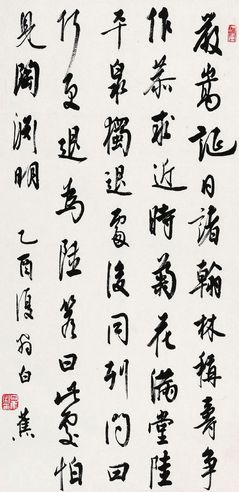 嚴嵩誕日諸翰林稱壽爭
作恭求近時菊花滿堂陸
平泉獨退處後同列問曰
何更退為陸答曰此處怕
見陶淵明
乙酉復翁白蕉